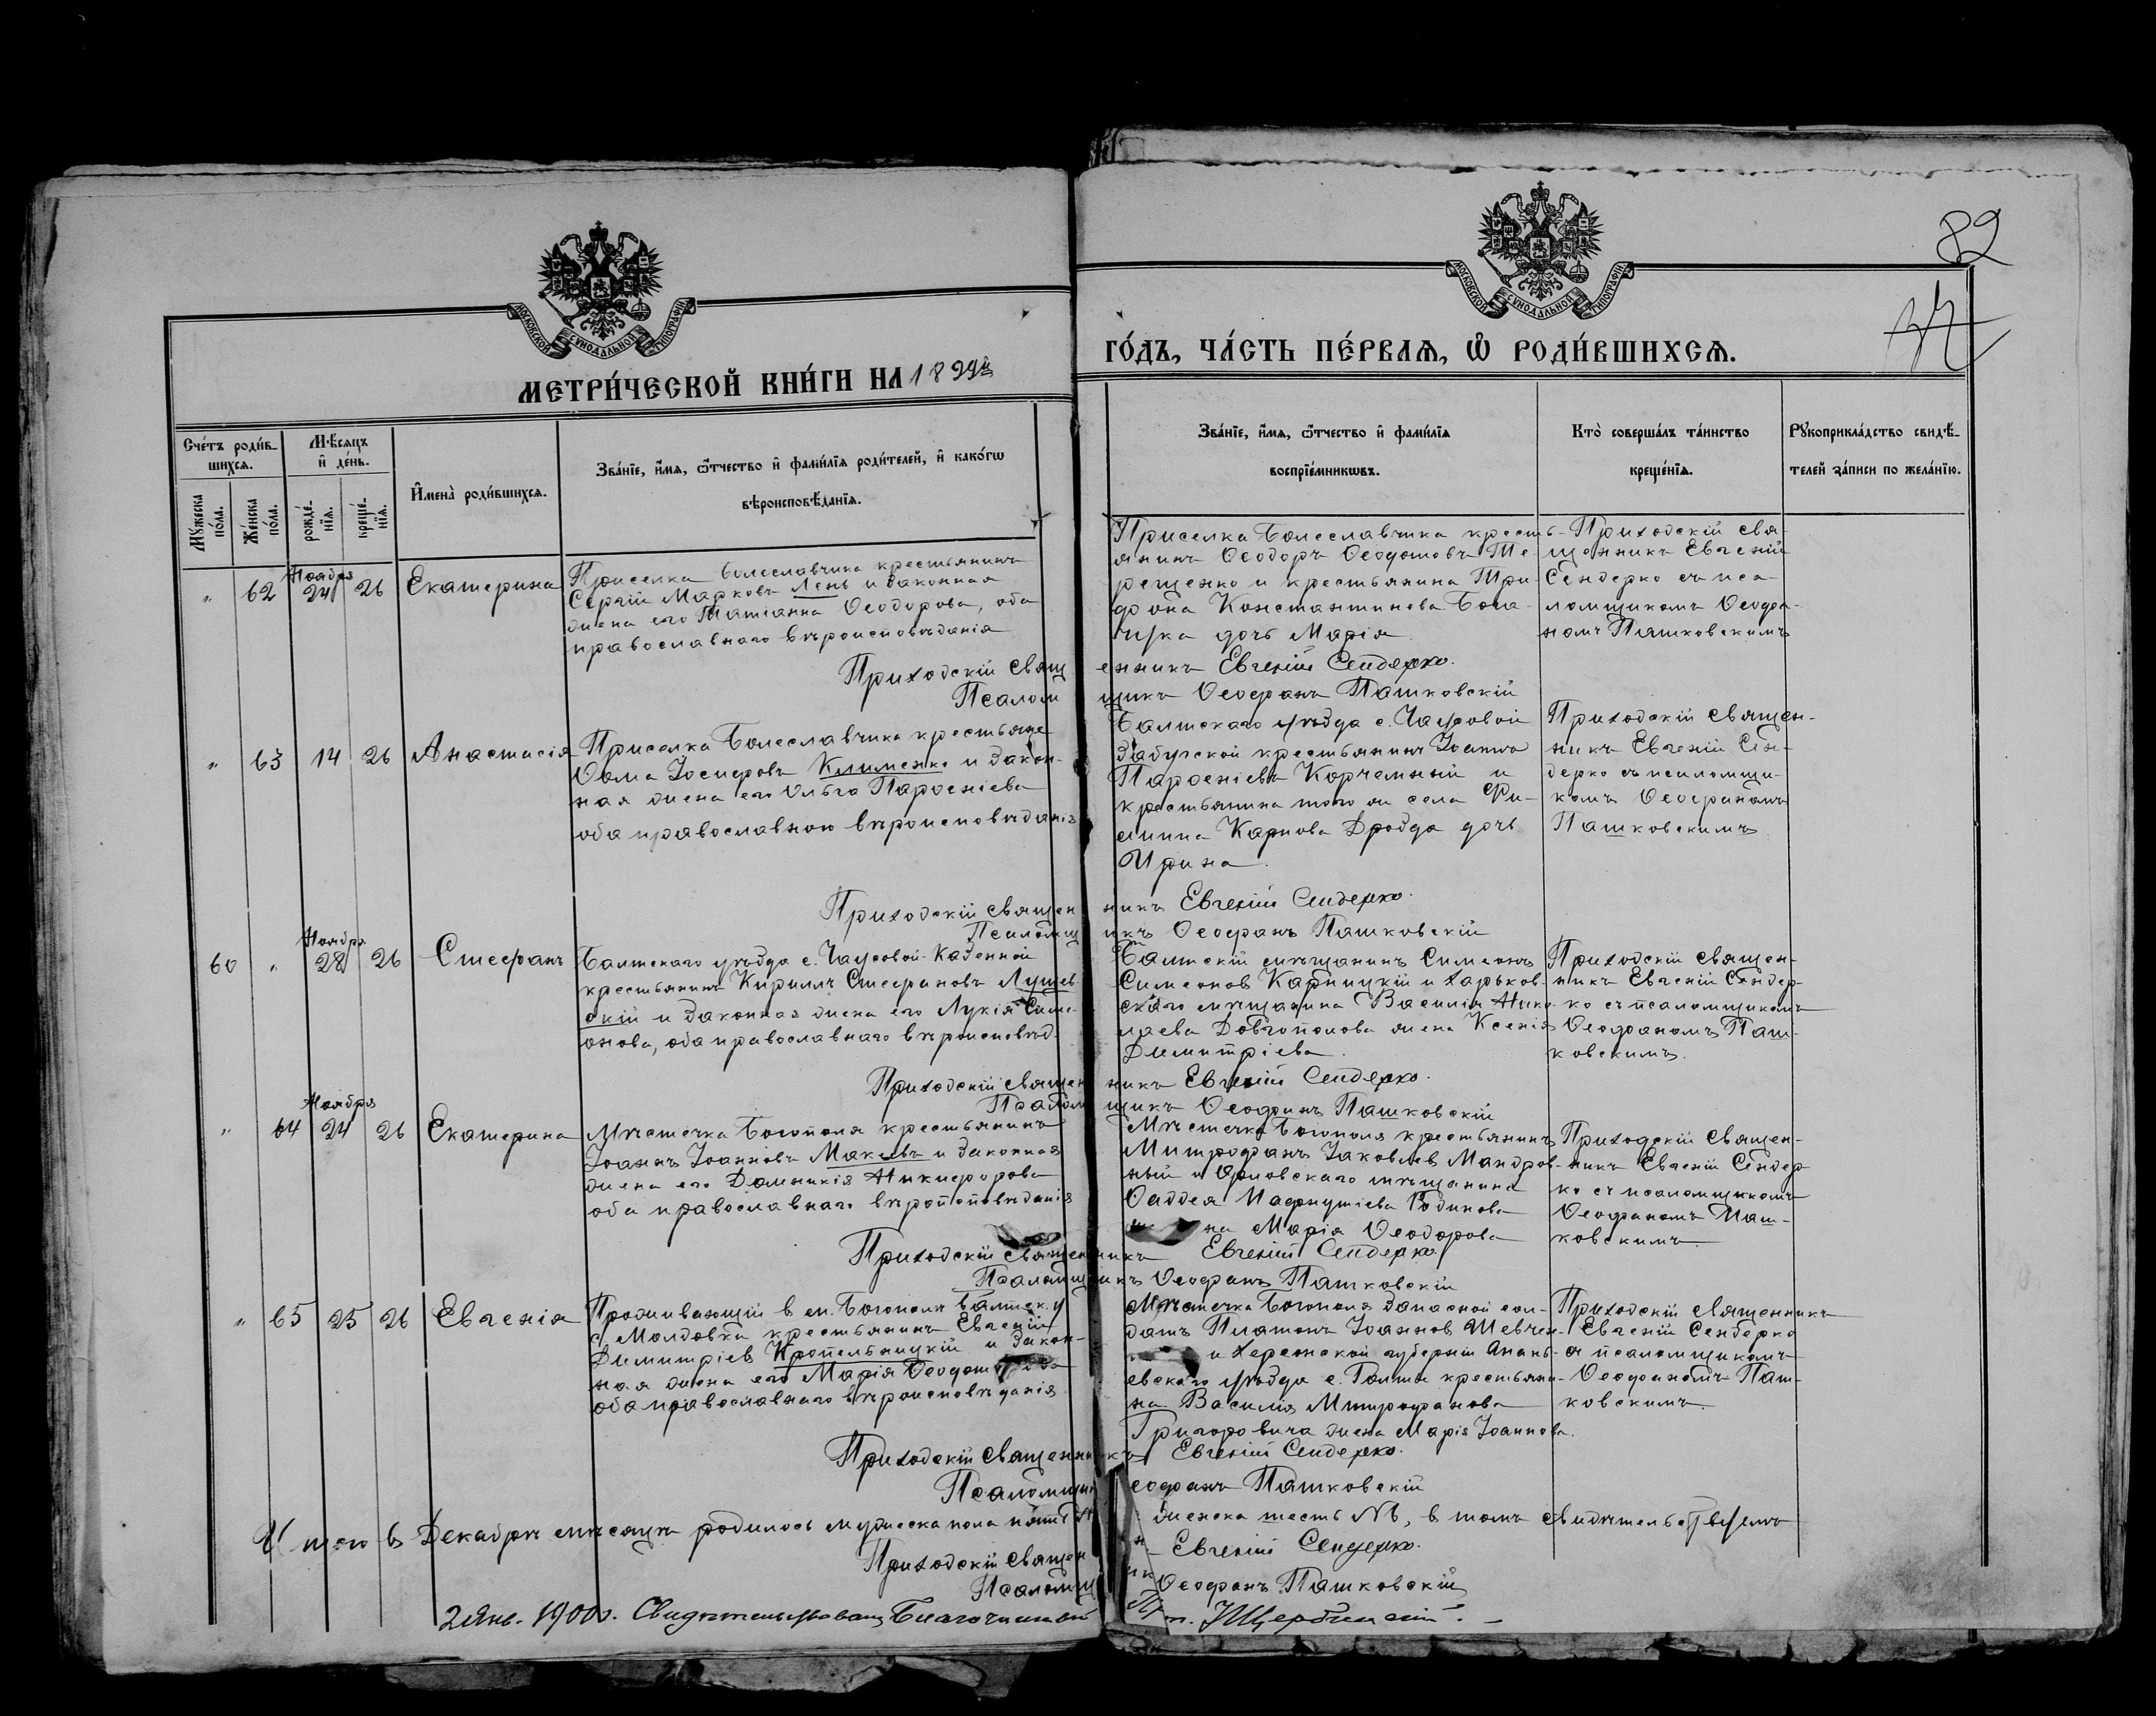 82
МОСКОВСКОЙ СУНОДАЛЬНОЙ ТИПОГРАФІИ
МОСКОВСКОЙ СУНОДАЛЬНОЙ ТИПОГРАФІИ
МЕТРИ́ЧЕСКОЙ КНИ́ГИ НА 1899й
ГО́ДЪ, ЧА́СТЬ ПЕ́РВАЯ, Ѽ РОДИ́ВШИХСЯ.
Сче́тъ роди́в-
шихся.
Мѣ́сяцъ
и҆ де́нь.
Мꙋжеска по́ла.
Же́нска по́ла.
рожде́-
нїя.
креще́-
нїя.
И҆мена̀ роди́вшихся.
Зва́нїе, и҆́мя, ѻ҆́тчество и҆ фами́лїя роди́телей, и҆ како́гѡ
вѣроисповѣ́данїя.
Зва́нїе, и҆́мя, ѻ҆́тчество и҆ фами́лїя
воспрїе́мникѡвъ.
Кто̀ соверша́лъ та́инство
креще́нїя.
Рꙋкоприкла́дство свидѣ́-
телей за́писи по жела́нїю.
" 62 Ноября 24 26 Екатерина
Приселка Болеславчика крестьянинъ
Сергій Марковъ Лень и законная
жена его Татіанна Ѳеодорова, оба
православнаго вѣроисповѣданія
Приселка Болеславчика кресть-
янинъ Ѳеодоръ Ѳеодотовъ Те-
рещенко и крестьянина Три-
фона Константинова
дочь Марія
Приходскій свя-
щенникъ Евгеній
Сендерко съ пса-
ломщикомъ Ѳеофа-
номъ Пашковскимъ
Приходскій священникъ Евгеній Сендерко.
Псаломщикъ Ѳеофанъ Пашковскій
" 63 14 26 Анастасія
Приселка Болеславчика крестьяне
Ѳома Іосифовъ Клименко и закон-
ная жена его Ольга Парѳеніева
оба православною вѣроисповѣданія
Балтскаго уѣзда с. Чаусовой
Забугской крестьянинъ Іоаннъ
Парѳеніевъ Корчемный и
крестьянина того же села Фи-
липпа Карпова Дрозда дочь
Ирина.
Приходскій священ-
никъ Евгеній Сен-
дерко съ псаломщи-
комъ Ѳеофаномъ
Пашковскимъ
Приходскій священникъ Евгеній Сендерко.
Псаломщикъ Ѳеофанъ Пашковскій
60 " Ноября 28 26 Стефанъ
Балтскаго уѣзда с. Чаусовой-Казенной
крестьянинъ Кириллъ Стефановъ
и законная жена его Лукія Симе-
онова, оба православнаго вѣроисповѣд.
Балтскій мѣщанинъ Симеонъ
Симеонов Карпицкій и Харьков-
скаго мѣщанина Василія Нико-
лаева Довгопопова жена Ксенія
Димитріева.
Приходскій священ-
никъ Евгеній Сендер-
ко съ псаломщикомъ
Ѳеофаномъ Паш-
ковскимъ.
Приходскій священникъ Евгеній Сендерко.
Псаломщикъ Ѳеофанъ Пашковскій
" 64 Ноября 24 26 Екатерина
Мѣстечка Богополя крестьянинъ
Іоаннъ Іоанновъ и законная
жена его Домникія Никифорова
оба православнаго вѣроисповѣданія
Мѣстечка Богополя крестьянинъ
Митрофанъ Іаковлев Мандров-
ный и Орловскаго мѣщанина
Ѳаддея Пафнутіева Родикова
на Марія Ѳеодорова
Приходскій священ-
никъ Евгеній Сендер
ко съ псаломщикомъ
Ѳеофаномъ Паш-
ковскимъ.
Приходскій священникъ Евгеній Сендерко.
Псаломщикъ Ѳеофанъ Пашковскій
" 65 25 26 Евгенія
Проживающій в м. Богополѣ Балтск. у
с. Молдовки крестьянинъ Евгеній
Димитріев Кропельницкій и закон-
ная жена его Марія
оба православнаго вѣроисповѣданія
Мѣстечка Богополя запасной сол-
датъ Платонъ Іоаннов Шевчен-
и Херсонской губерніи Анань-
евскаго уѣзда с. Голты крестьяни-
на Василія Митрофанова
Григоровича жена Марія Іоаннова.
Приходскій священникъ
Евгеній Сендерко
съ псаломщикомъ
Ѳеофаномъ Паш-
ковскимъ.
Приходскій священникъ Евгеній Сендерко.
Псаломщи еофанъ Пашковскій
Итого въ Декабрѣ мѣсяцѣ родилось мужеска пола пять женска шесть №, в томъ свидѣтельствуемъ
Приходскій священ Евгеній Сендерко.
Псаломщикъ Ѳеофанъ Пашковскій
2 Янв. 1900 г. Свидѣтельствовалъ Благочинный